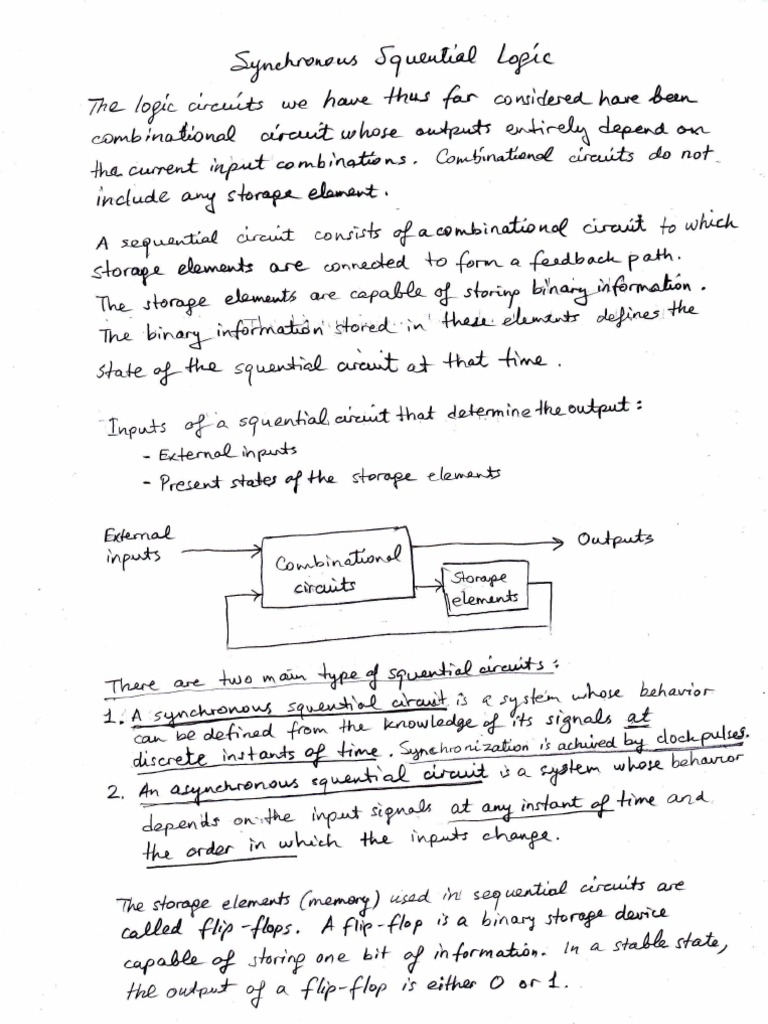 Synchronous Squential Logic
The logic circuits we have thus far considered have been
combinational circuit whose outputs entirely depend on
the current input combinations. Combinational circuits do not
include any storage element.
A sequential circuit consists of a combinational circuit to which
storage elements are connected to form a feedback path.
The storage elements are capable of storing binary information.
The binary information stored in these elements defines the
state of the squential circuit at that time.
Inputs of a squential circuit that determine the output:
- External inputs
- Present states of the storage elements
External
inputs
Combinational
circuits
Storage
elements
Outputs
There are two main type of squential circuits:
1. A synchronous squential circuit is a system whose behavior
can be defined from the knowledge of its signals at
discrete instants of time. Synchronization is achived by clock pulses.
2. An asynchronous squential circuit is a system whose behavior
depends on the input signals at any instant of time and
the order in which the inputs change.
The storage elements (memory) used in sequential circuits are
called flip-flops. A flip-flop is a binary storage device
capable of storing one bit of information. In a stable state,
the output of a flip-flop is either 0 or 1.